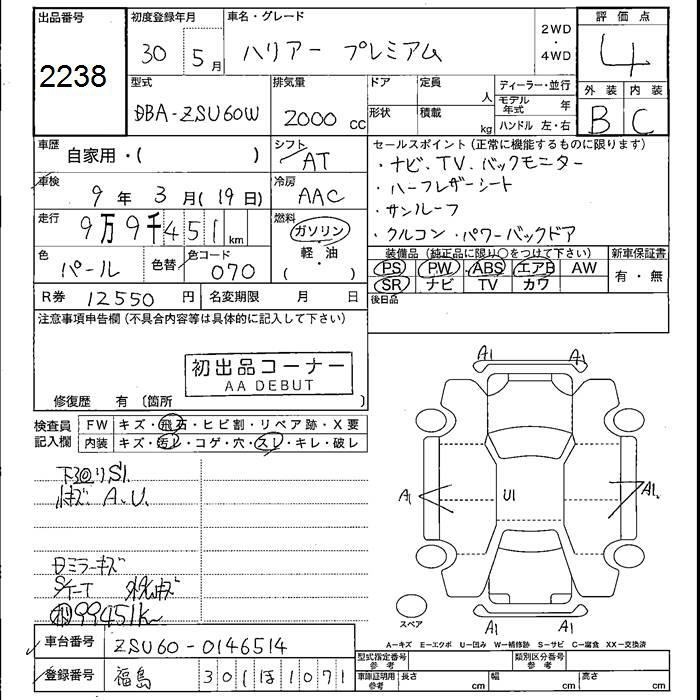 出品番号 初度登録年月 車名・グレード 2WD・4WD 評価点
2238 30 5月 ハリアー プレミアム 4
型式 排気量 ドア 定員 人 ディーラー・並行 外装 内装
DBA-ZSU60W 2000 cc 形状 積載 kg モデル年式 年 B C
ハンドル 左・右
車歴 自家用・( ) シフト AT セールスポイント(正常に機能するものに限ります)
車検 9年 3月(19日) 冷房 AAC ・ナビ、TV、バックモニター
・ハーフレザーシート
走行 9万9千451km 燃料 ガソリン・軽・油( ) ・サンルーフ
・クルコン・パワーバックドア
色 パール 色替 色コード 070 装備品(純正品に限り○をつけて下さい) 新車保証書
PS PW ABS エアB AW 有・無
SR ナビ TV カワ
R券 12550円 名変期限 月 日 後日品
注意事項申告欄(不具合内容等は具体的に記入して下さい)
初出品コーナー
AA DEBUT
修復歴 有〔箇所 〕
検査員記入欄 FW キズ・飛石・ヒビ割・リペア跡・X要
内装 キズ・汚レ・コゲ・穴・スレ・キレ・破レ
下回りS1.
キズ A.U.
ミラーキズ
99451k
A1 A1
A1 U1 A1.
A1 A1
スペア
A−キズ E−エクボ U−凹み W−補修跡 S−サビ C−腐食 XX−交換済
車台番号 ZSU60-0146514
型式指定番号 参考 類別区分番号 参考
登録番号 福島 301 ほ 1071
車庫証明用 参考 長さ cm 幅 cm 高さ cm